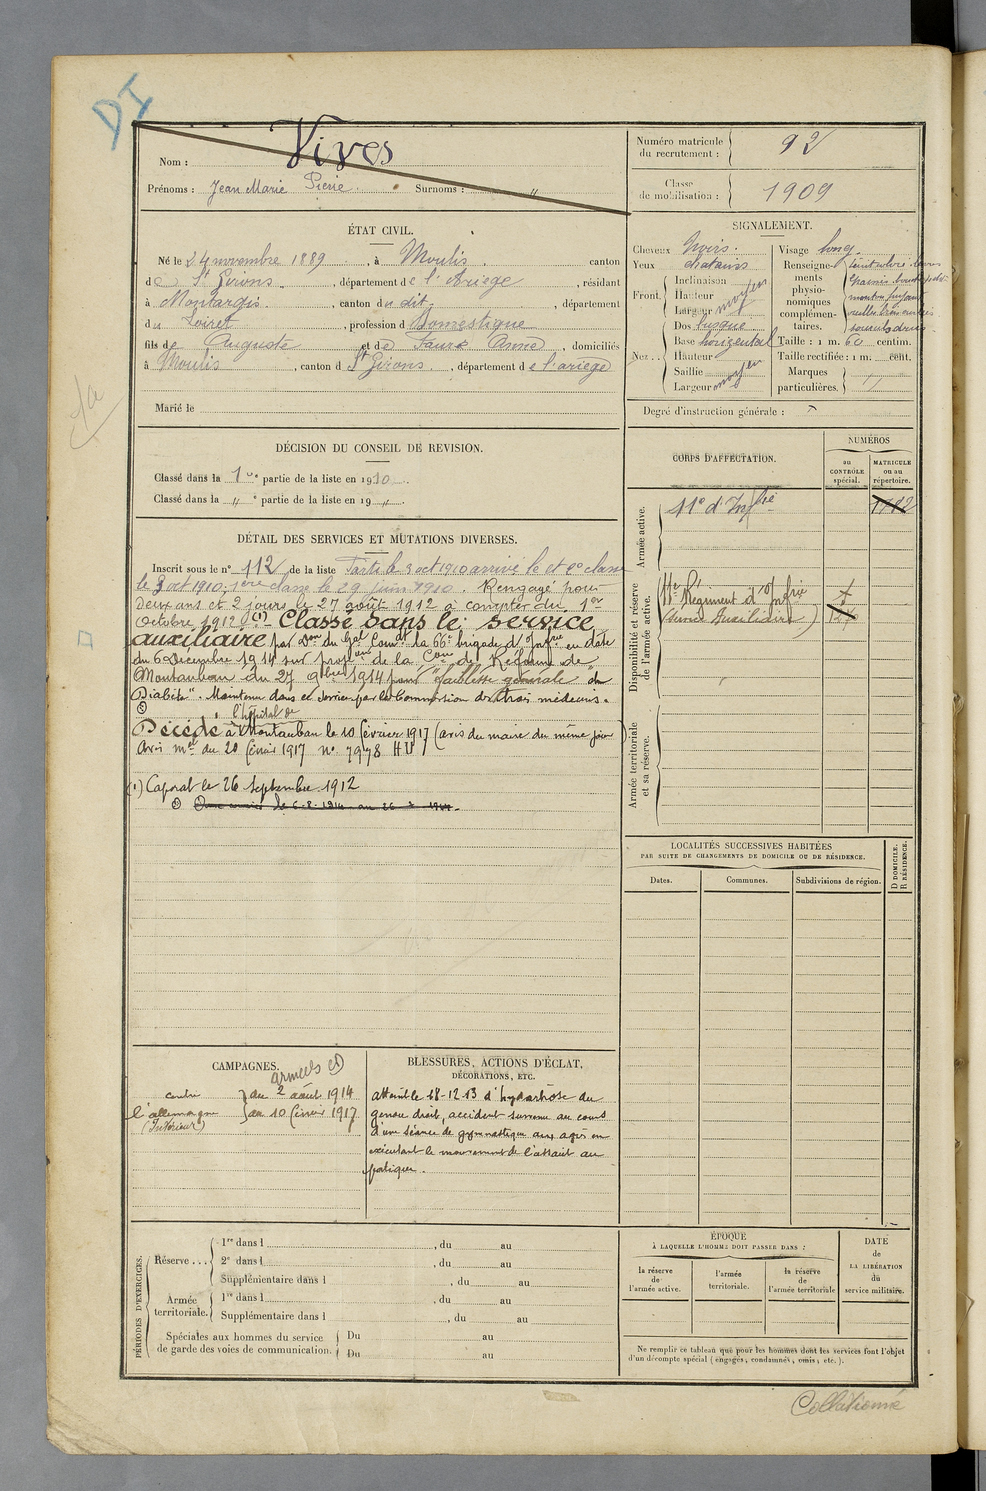 DI
Nom : Vives
Prénoms : Jean Marie Pierre. Surnoms : "
Numéro matricule du recrutement : 92
Classe de mobilisation : 1909
ÉTAT CIVIL.
Né le 24 novembre 1889, à Moulis canton
de St Girons, département de l'Ariège, résidant
à Montargis, canton du dit, département
du Loiret, profession d Domestique
fils de Auguste et de Faure Anne, domiciliés
à Moulis, canton d St Girons, département de l'ariège
Marié le
SIGNALEMENT.
Cheveux Noirs.
Yeux chatains
Front. Inclinaison
Hauteur
Largeur moyen
Nez. Dos busqué
Base horizontal
Hauteur
Saillie
Largeur moyen
Visage long
Renseignements physionomiques complémentaires.
menton fuyant
Taille : 1 m. 60 centim.
Taille rectifiée : 1 m. cent.
Marques particulières. "
Degré d'instruction générale :
DÉCISION DU CONSEIL DE REVISION.
Classé dans la 1re partie de la liste en 1910.
Classé dans la " e partie de la liste en 19 "
DÉTAIL DES SERVICES ET MUTATIONS DIVERSES.
Inscrit sous le n° 112 de la liste Parti le 3 oct 1910 arrivé le et 2e classe
le 3 oct 1910, 1ère classe le 29 juin 1910. Rengagé pour
deux ans et 2 jours le 27 août 1912 à compter du 1er
Octobre 1912 (1) Classé dans le service
auxiliaire par Don du Gal Comdt la 66e brigade d'Infrie en date
du 6 Decembre 1914 sur propon de la Con de Réforme de
Montauban du 27 9bre 1914 pour "faiblesse générale
Diabète". Maintenu dans ce service par la Commission des trois médecins.
Décédé à l'hôpital de Montauban le 10 février 1917 (avis du maire du même jour)
Avis mel du 20 février 1917 n° 7978 HU
(1) Caporal le 26 Septembre 1912
CORPS D'AFFECTATION.
NUMÉROS
au CONTRÔLE spécial.
MATRICULE ou au répertoire.
Armée active.
11e d'Infrie
1782
Disponibilité et réserve de l'armée active.
11e Régiment d'Infrie
(service Auxiliaire)
Armée territoriale et sa réserve.
LOCALITÉS SUCCESSIVES HABITÉES
PAR SUITE DE CHANGEMENTS DE DOMICILE OU DE RÉSIDENCE.
Dates.
Communes.
Subdivisions de région.
D DOMICILE.
R RÉSIDENCE.
CAMPAGNES.
armées
contre l'allemagne
(Intérieur)
du 2 août 1914
au 10 février 1917
BLESSURES, ACTIONS D'ÉCLAT,
DÉCORATIONS, ETC.
atteint le 18-12-13 d'hydarthose du
genou droit, accident survenu au cours
d'une séance de gymnastique aux agrès en
exécutant le mouvement de l'assaut au
portique.
PÉRIODES D'EXERCICES.
Réserve... 1re dans l , du au
2e dans l , du au
Supplémentaire dans l , du au
Armée territoriale. 1re dans l , du au
Supplémentaire dans l , du au
Spéciales aux hommes du service de garde des voies de communication. Du au
Du au
ÉPOQUE
À LAQUELLE L'HOMME DOIT PASSER DANS :
la réserve de l'armée active.
l'armée territoriale.
la réserve de l'armée territoriale
DATE de LA LIBÉRATION du service militaire.
Ne remplir ce tableau que pour les hommes dont les services font l'objet
d'un décompte spécial (engagés, condamnés, omis, etc.).
Collationné